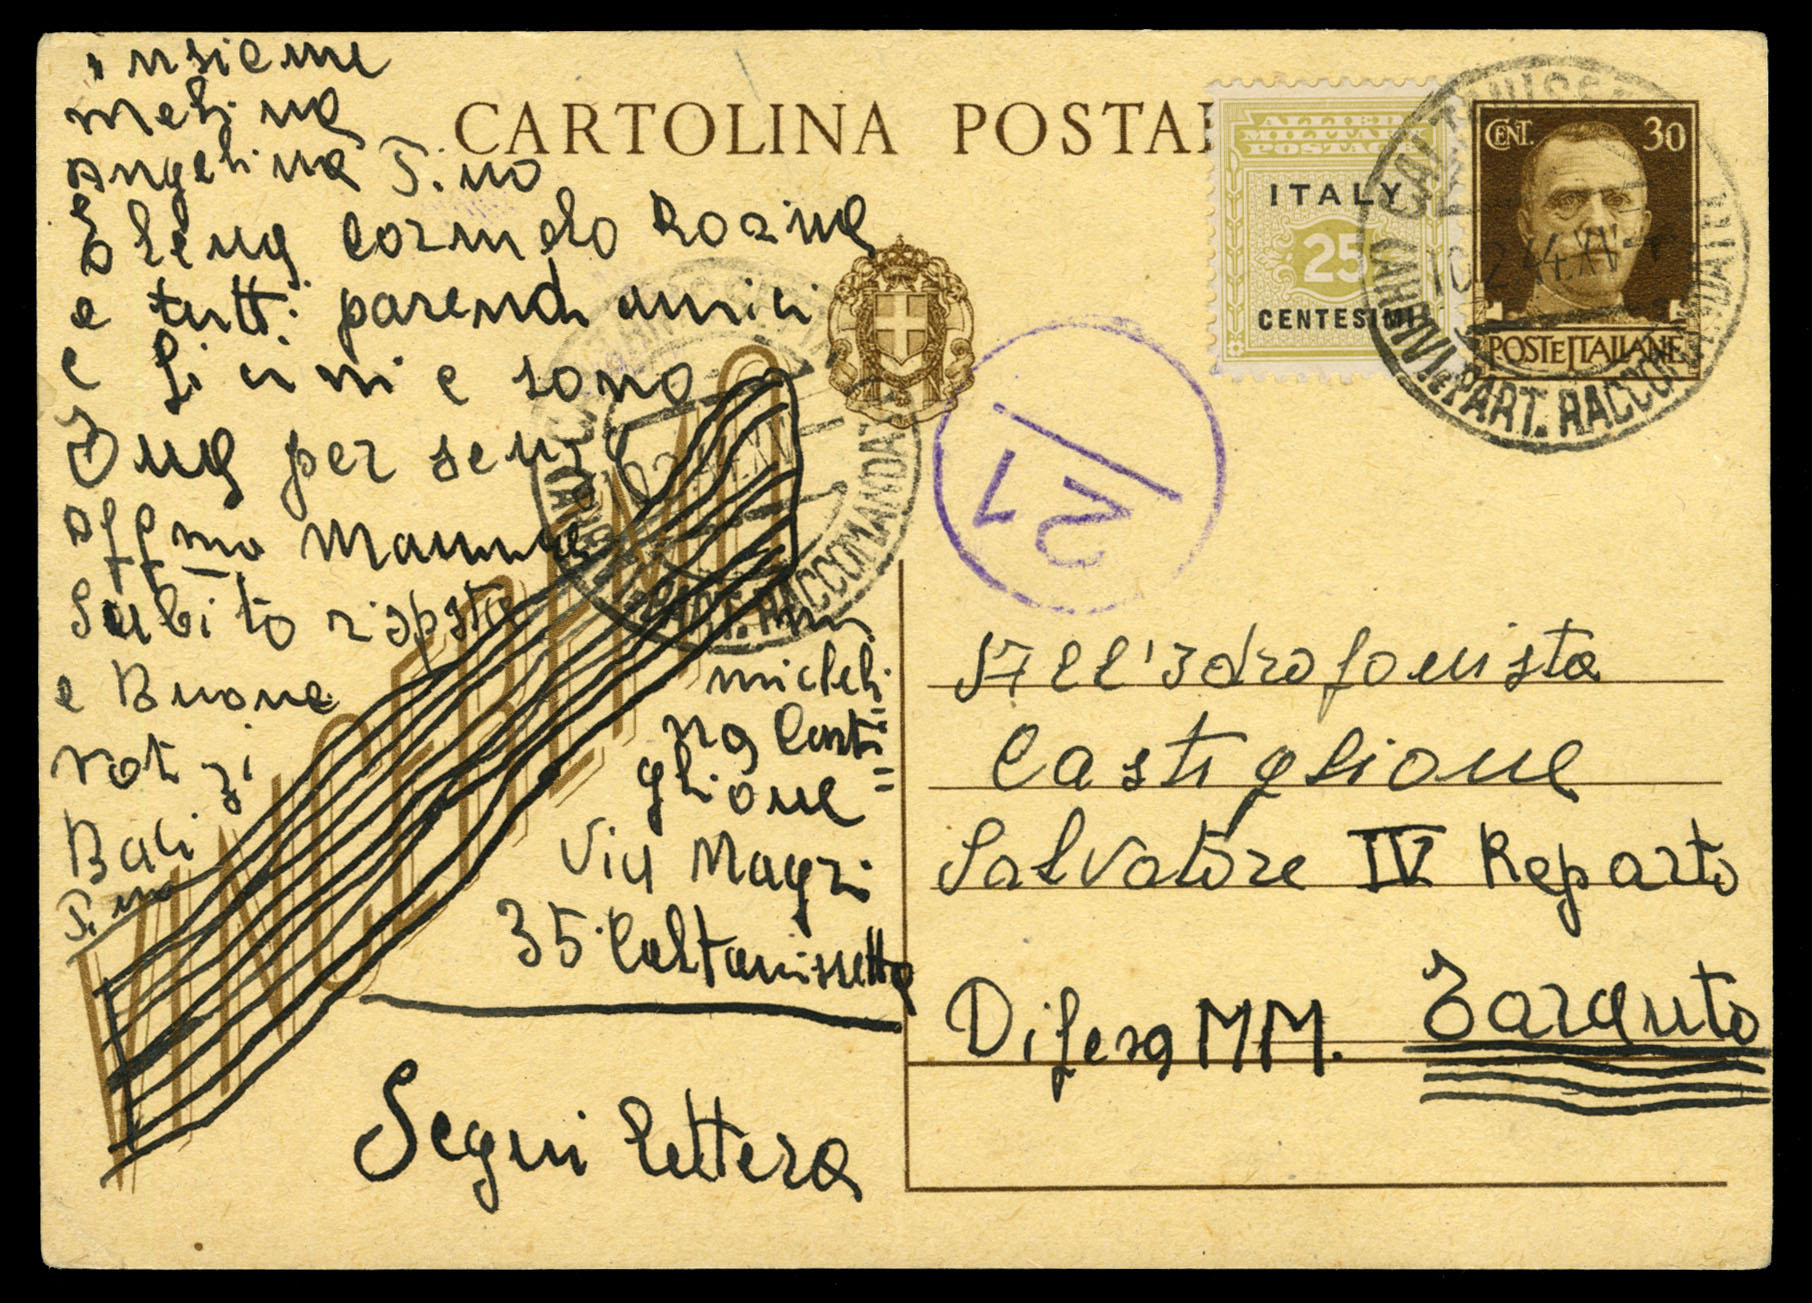 insieme
melina
Angelina Tino
Elena Cornelo Rosina
e tutti parendi amici
e li cini e sono
Ing per sempre
Affma Mamma
Subito risposta
e Buone
notizi
Baci
Tino
CARTOLINA POSTAL
ALLIED
MILITARY
POSTAGE
ITALY
25
CENTESIMI
CENT. 30
POSTE ITALIANE
CALTANISSETTA
10.2.44.XX
ARRIVI E PART. RACCOMANDATE
PART. RACCOMANDATE
21
VINCEREMO
micheli
na Casti=
glione=
Via Magri
35 Caltanissetta
Segui lettera
All'Idrofonista
Castiglione
Salvatore IV Reparto
Difesa MM. Taranto